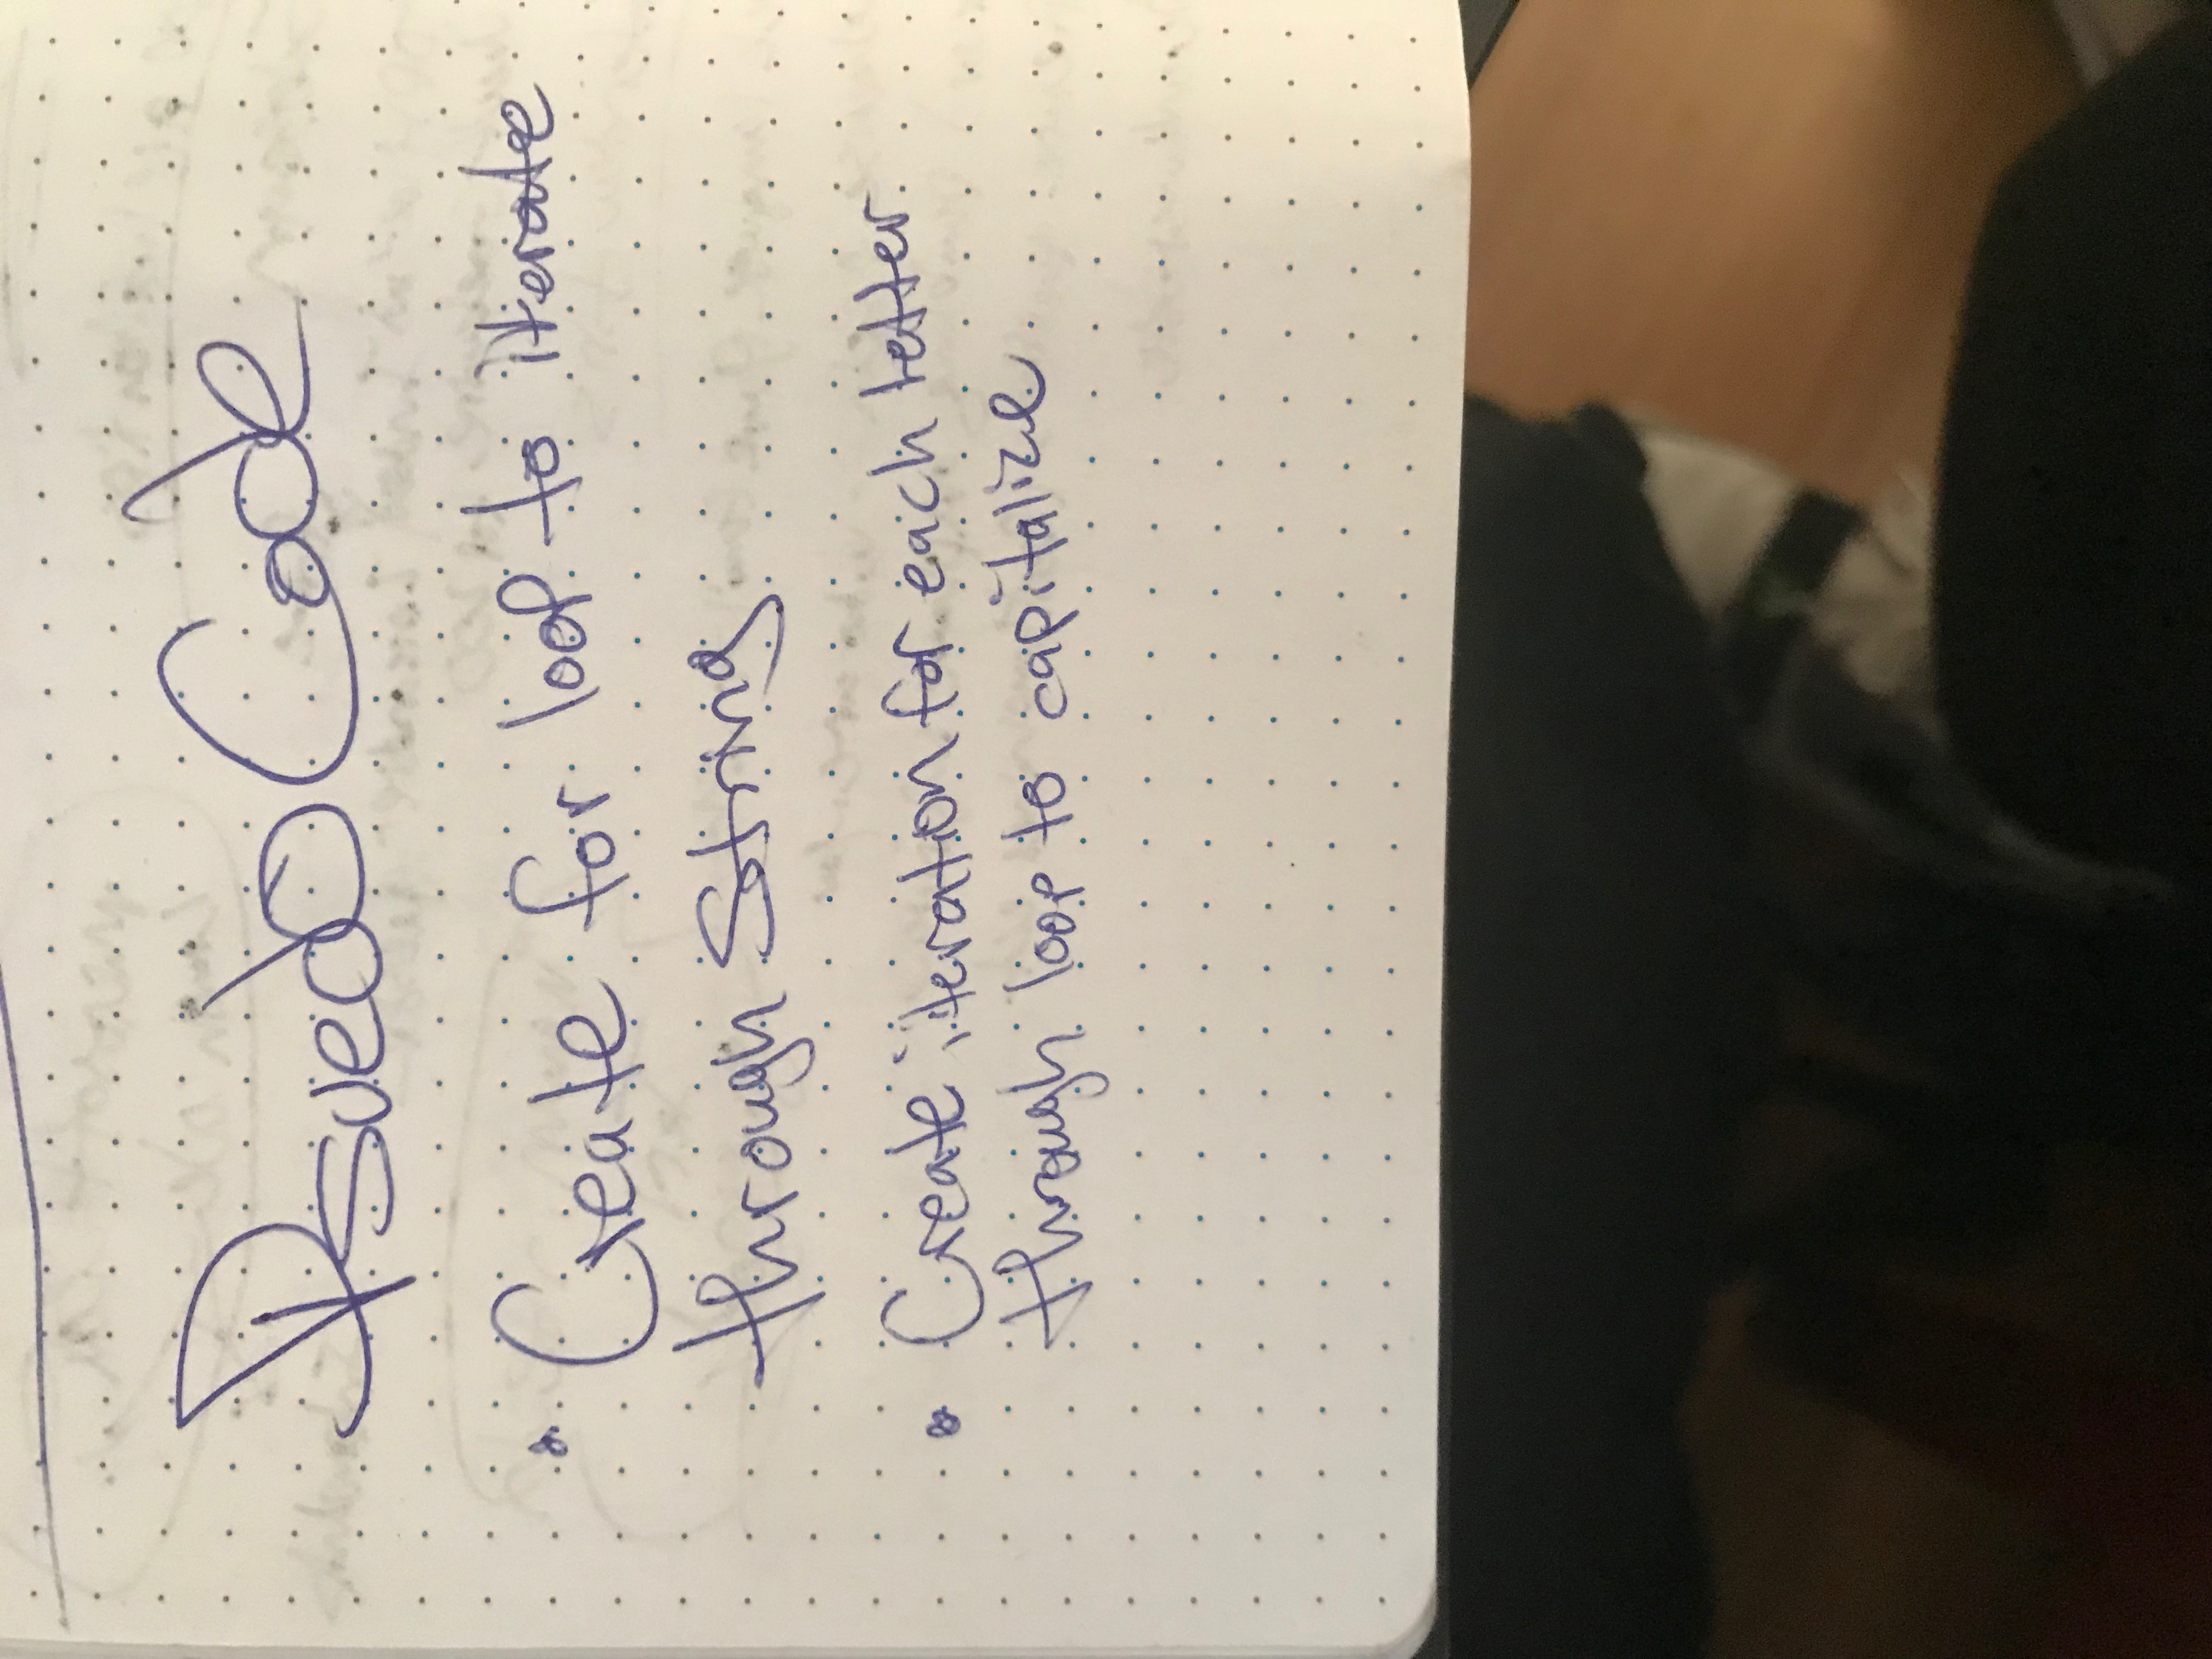 Psuedo Code
• Create for loop to iterate
through String
• Create iteration for each letter
through loop to capitalize